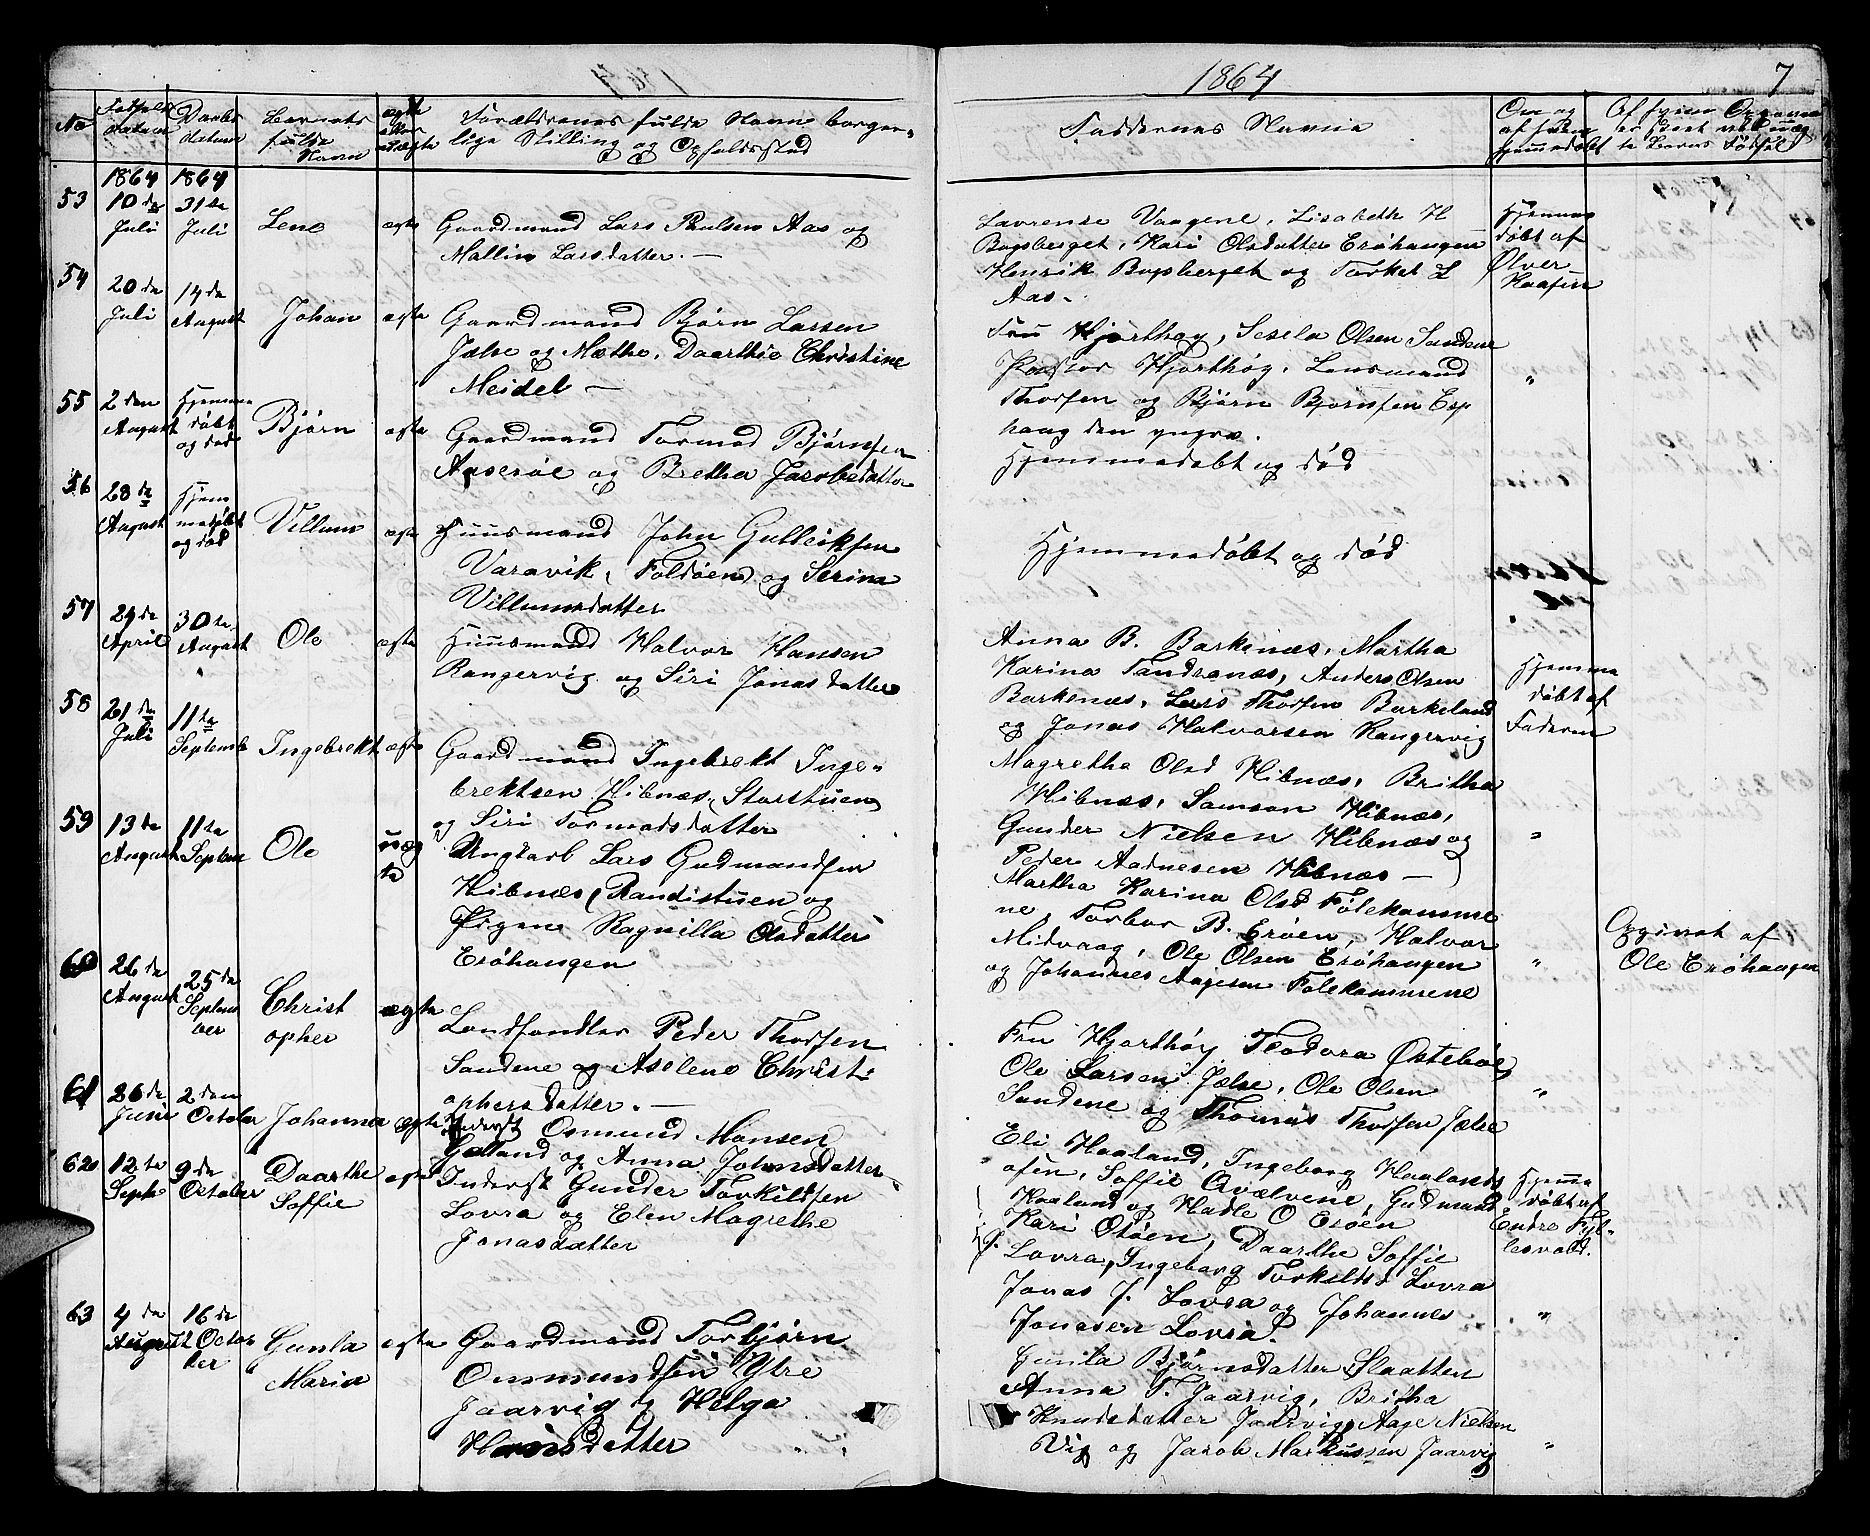 1864
7
No
Fødsels datum
Daabs datum
Barnets fulde Navn
ægte eller uægte
Forældrenes fulde Navne borger-
lige Stilling og Opholdssted
Faddernes Navne
Om og af hvem hjemmedøbt
Af hvem Opgaven er skeet
1864 1864
53 10de Juli 31te Juli Lene ægte
Gaardmand Lars Paulsen Aas og
Mallin Larsdatter. —
Lavrense Vaagene, Lisabeth H
Bogsberget, Kari Olsdatter Erøhaugen
Henrik Bogsberget og Torkel L
Aas.
Hjemme døbt af Ølver
54 20de Juli 14de August Johan ægte
Gaardmand Bjørn Larsen
Jælse og Mæthe, Daarthie Christine
Meidel —
Fru Hjorthøy, Sesela Olsen Sandene
Pastor Hjorthøy, Lensmand
Thorsen og Bjørn Bjørnsen Esp
haug den yngre.
"
55 2den August Hjemme døbt og død Bjørn ægte
Gaardmand Tormod Bjørnsen
Aaserøe og Bretha Jacobsdatter
Hjemmedøbt og død
56 28de August Hjem medøbt og død Villum ægte
Huusmand John Gulleiksen
Varavik, Foldøen og Serina
Villumsdatter
Hjemmedøbt og død
57 29de April 30te August Ole ægte
Huusmand Halvor Hansen
Rangervig og Siri Jonasdatter
Anna B. Barkenæs, Martha
Karina Tandranæs, Anders Olsen
Barkenæs, Lars Thorsen Barkeland
og Jonas Halvorsen Rangervig
Hjemme døbt af Faderen
58 21de Juli 11te Septemb Ingebrekt ægte
Gaardmand Ingebrekt Inge-
brektsen Hibnæs, Storstuen
og Siri Tormodsdatter
Magretha Olsd Hibnæs, Britha
Hibnæs, Samson Hibnæs,
Gunder Nielsen Hibnæs og
Peder Aadnesen Hibnæs —
"
59 13de August 11te Septem Ole uæg te
Ungkarl Lars Gudmandsen
Hibnæs (Randistuen og
Pigen Ragnilla Olsdatter
Erøhaugen
Martha Karina Olsd Folekamme
ne, Torbor B. Erøen, Halvor
Midvaag, Ole Olsen Erøhaugen
og Johannes Aagesen Folekammene
"
Opgivet af
Ole Erøhaugen
60 26de August 25de Septem ber Christ opher ægte
Landhandler Peder Thorsen
Sandene og Aselene Christ-
ophersdatter. —
Fru Hjorthøy Teodora Østebøe,
Ole Larsen Jælse, Ole Olsen
Sandene og Thomas Thorsen Jælse
"
61 26de Juni 2den October Johanna ægte
Inderst Osmund Monsen
Galland og Anna Johnsdatter
Eli Haaland, Ingeborg Haalands
osen, Soffie Qvælvene, Gudmand
Haaland og Hadle O Erøen
Hjemme døbt af Endre Fyl-
62 12te Septb 9de October Daarthe Soffie ægte
Inderst Gunder Torkildsen
Lovra og Elen Magrethe
Jonasdatter
Kari Otøen, Daarthe Soffie
J. Lovra, Ingeborg Torkildsd Lovra
Jonas J. Lovra og Johannes
Jonasen Lovra.
"
63 4de August 16de Octo ber Gunla Maria ægte
Gaardmand Torbjørn
Osmundsen Ytre
Jaarvig og Helga
Hansdatter
Gunla Bjørnsdatter Slaatten
Anna T. Jaarvig, Britha
Knudsdatter Jaarvig, Aage Nielsen
Vig og Jacob Markussen Jaarvig
"